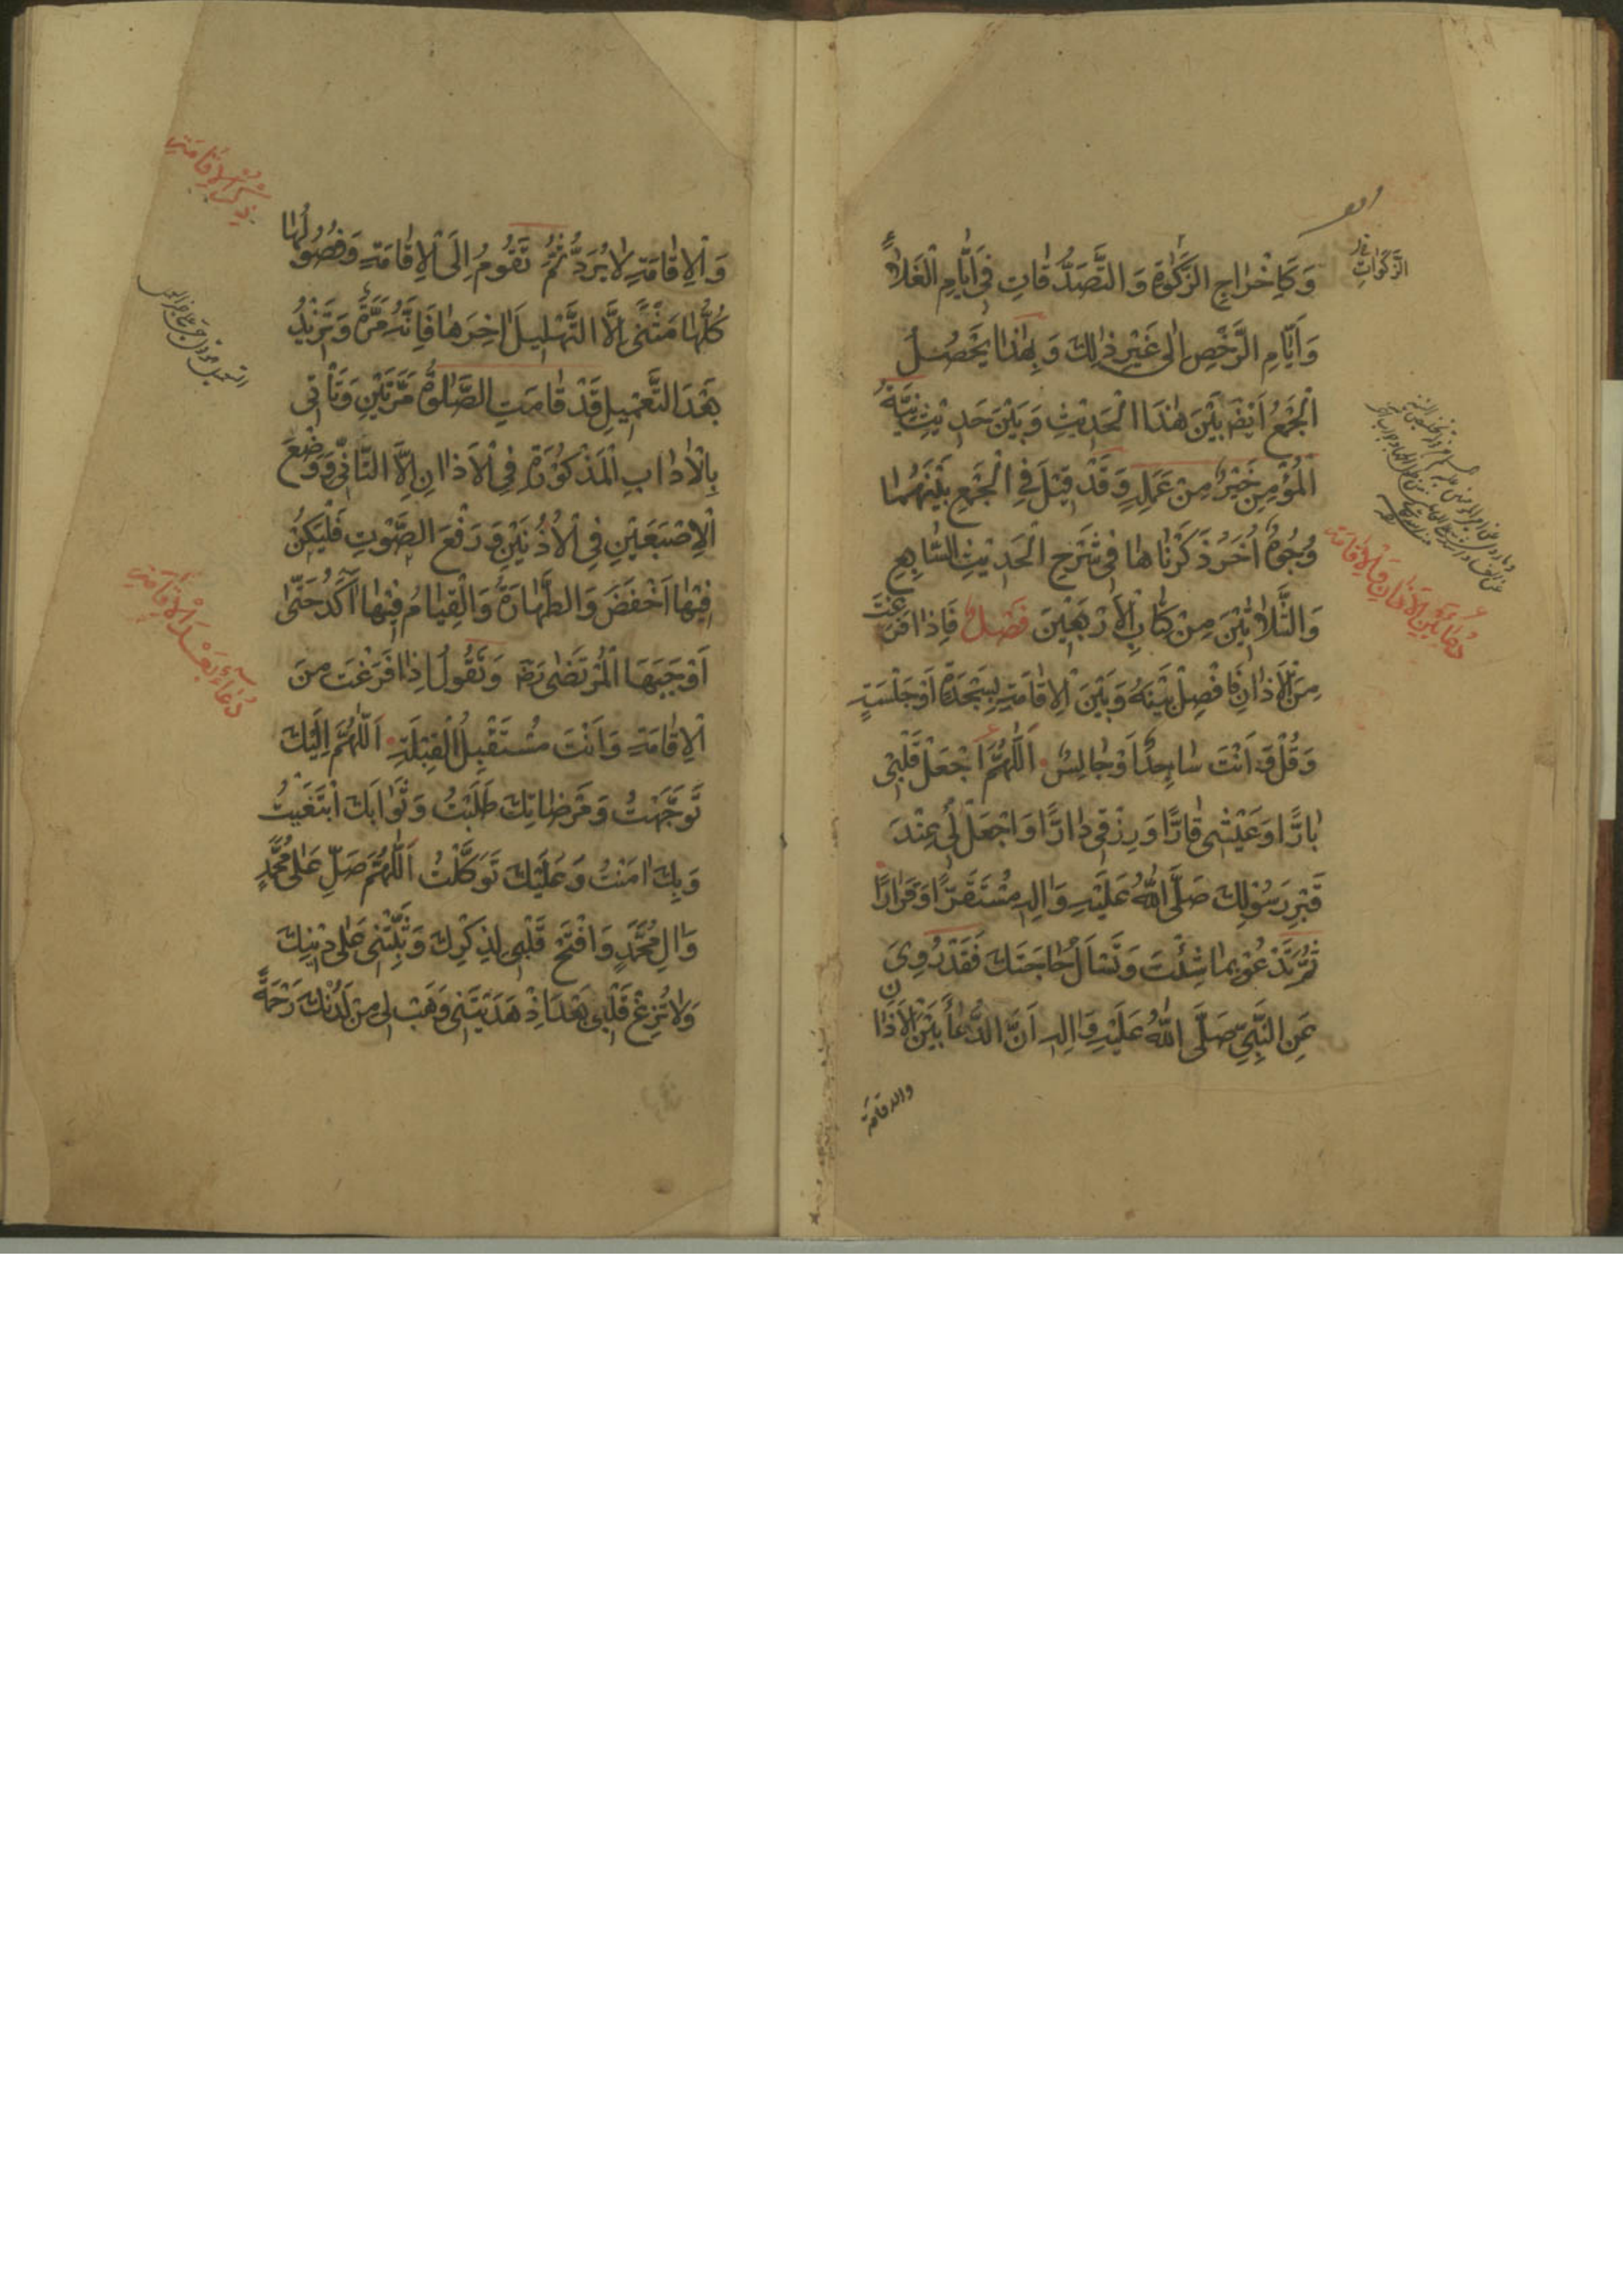 وَكَاِخْرَاجِ الزَّكٰوةِ وَ التَّصَدُّقَاتِ فِي اَيَّامِ الْغَلَاءِ
وَاَيَّامِ الرَّخَصِ اِلٰى غَيْرِ ذٰلِكَ وَ بِهٰذَا يَحْصُلُ
الْجَمْعُ اَيْضً بَيْنَ هٰذَا الْحَدِيْثِ وَ بَيْنَ حَدِيْثِ نِيَّةُ
الْمُؤْمِنِ خَيْرٌ مِنْ عَمَلِهِ وَ قَدْ قِيْلَ فِي الْجَمْعِ بَيْنَهُمَا
وُجُوهٌ اُخَرُ ذَكَرْنَاهَا فِي شَرْحِ الْحَدِيْثِ السَّابِعِ
وَالثَّلَاثِيْنَ مِنْ كِتَابِ الْاَرْبَعِيْنَ فَصْلٌ فَاِذَا فَرَغْتَ
مِنَ الْاَذَانِ فَافْصِلْ بَيْنَهُ وَ بَيْنَ الْاِقَامَةِ بِسَجْدَةٍ اَوْ جَلْسَةٍ
وَ قُلْ وَ اَنْتَ سَاجِدٌ اَوْ جَالِسٌ اَللّٰهُمَّ اجْعَلْ قَلْبِي
بَارًّا وَ عَيْشِي قَارًّا وَ رِزْقِي دَارًّا وَاجْعَلْ لِي عِنْدَ
قَبْرِ رَسُوْلِكَ صَلَّى اللّٰهُ عَلَيْهِ وَاٰلِهِ مُسْتَقَرًّا وَ قَرَارًا
ثُمَّ تَدْعُوْ بِمَا شِئْتَ وَ تَسْاَلُ حَاجَتَكَ فَقَدْ رُوِيَ
عَنِ النَّبِيِّ صَلَّى اللّٰهُ عَلَيْهِ وَ اٰلِهِ اَنَّ الدُّعَاءَ بَيْنَ الْاَذَانِ
والاقامة
الزَّكَوَاتِ
دُعَاءُ بَيْنَ الْاَذَانِ وَ الْاِقَامَةِ
وَالْاِقَامَةِ لَا يُرَدُّ ثُمَّ تَقُوْمُ اِلَى الْاِقَامَةِ وَ فُصُوْلُهَا
كُلُّهَا مَثْنًى اِلَّا التَّهْلِيلَ اٰخِرَهَا فَاِنَّهُ مَرَّةً وَ تَزِيْدُ
بَعْدَ التَّعْمِيلِ قَدْ قَامَتِ الصَّلٰوةُ مَرَّتَيْنِ وَ تَأْتِي
بِالْاٰدَابِ الْمَذْكُوْرَةِ فِي الْاَذَانِ اِلَّا التَّاَنِّيَ وَ وَضْعَ
الْاِصْبَعَيْنِ فِي الْاُذُنَيْنِ وَ رَفْعَ الصَّوْتِ فَلْيَكُنْ
فِيْهَا اَخْفَضَ وَ الطَّهَارَةُ وَ الْقِيَامُ فِيْهَا اٰكَدُ حَتّٰى
اَوْجَبَهَا الْمُرْتَضٰى رَضَ وَ تَقُولُ اِذَا فَرَغْتَ مِنَ
الْاِقَامَةِ وَ اَنْتَ مُسْتَقْبِلُ الْقِبْلَةِ اَللّٰهُمَّ اِلَيْكَ
تَوَجَّهْتُ وَ مَرْضَاتَكَ طَلَبْتُ وَ ثَوَابَكَ ابْتَغَيْتُ
وَ بِكَ اٰمَنْتُ وَ عَلَيْكَ تَوَكَّلْتُ اَللّٰهُمَّ صَلِّ عَلٰى مُحَمَّدٍ
وَ اٰلِ مُحَمَّدٍ وَ افْتَحْ قَلْبِي لِذِكْرِكَ وَ ثَبِّتْنِي عَلٰى دِيْنِكَ
وَلَا تُزِغْ قَلْبِي بَعْدَ اِذْ هَدَيْتَنِي وَ هَبْ لِي مِنْ لَدُنْكَ رَحْمَةً
ذِكْرُ الْاِقَامَةِ
دُعَاءُ بَعْدَ الْاِقَامَةِ